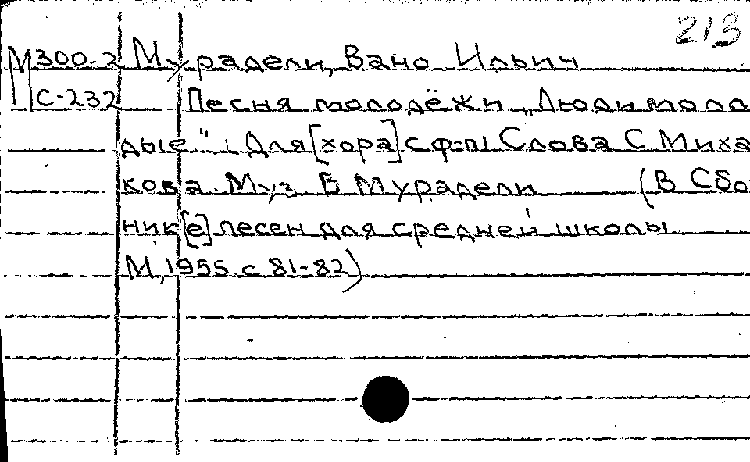 213
М300-2 Мурадели, Вано Ильич
С-232 Песня молодёжи „Люди моло
дые". Для [хора] с ф-п. Слова С Миха
кова. Муз. В Мурадели (В Сбо
ник[е] песен для средней школы
М, 1955 с 81-82)